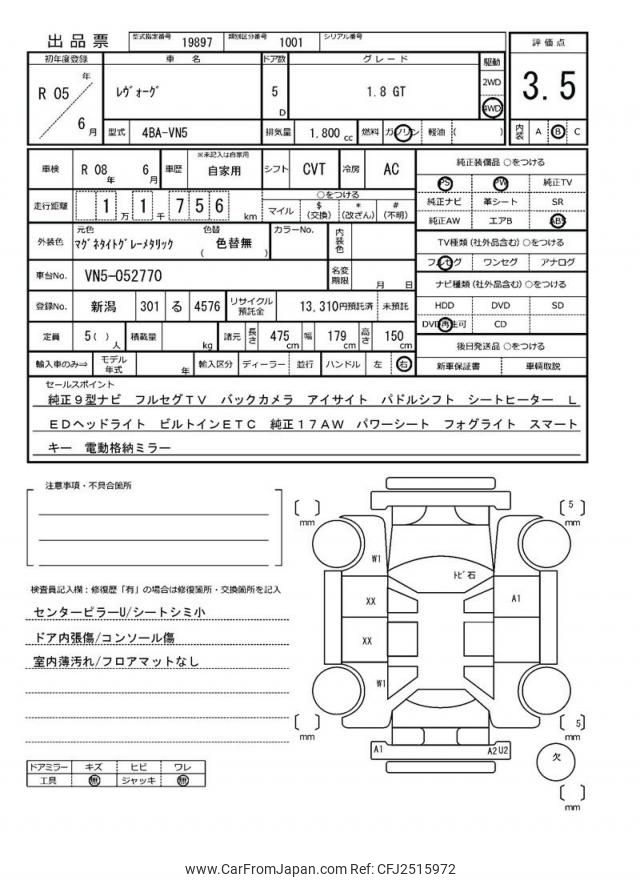 出品票
型式指定番号 19897 類別区分番号 1001 シリアル番号
初年度登録 車名 ドア数 グレード 駆動 評価点
R 05 年 6 月 レヴォーグ 5 D 1.8 GT 2WD 4WD 3.5
型式 4BA-VN5 排気量 1.800 cc 燃料 ガソリン 軽油 ( ) 内装 A B C
車検 R 08 年 6 月 車歴 ※未記入は自家用 自家用 シフト CVT 冷房 AC
走行距離 1 万 1 千 7 5 6 km ○をつける マイル $ (交換) * (改ざん) # (不明)
外装色 元色 マグネタイトグレーメタリック 色替 ( 色替無 ) カラーNo. 内装色
車台No. VN5-052770 名変期限 月 日
登録No. 新潟 301 る 4576 リサイクル預託金 13,310円預託済 未預託
定員 5( ) 人 積載量 kg 諸元 長さ 475 cm 幅 179 cm 高さ 150 cm
輸入車のみ⇒ モデル年式 年 輸入区分 ディーラー 並行 ハンドル 左 右
純正装備品 ○をつける
PS PW 純正TV
純正ナビ 革シート SR
純正AW エアB ABS
TV種類(社外品含む)○をつける
フルセグ ワンセグ アナログ
ナビ種類(社外品含む)○をつける
HDD DVD SD
DVD再生可 CD
後日発送品 ○をつける
新車保証書 車輌取説
セールスポイント
純正9型ナビ フルセグTV バックカメラ アイサイト パドルシフト シートヒーター L
EDヘッドライト ビルトインETC 純正17AW パワーシート フォグライト スマート
キー 電動格納ミラー
注意事項・不具合箇所
検査員記入欄:修復歴「有」の場合は修復箇所・交換箇所を記入
センターピラーU/シートシミ小
ドア内張傷/コンソール傷
室内薄汚れ/フロアマットなし
ドアミラー キズ ヒビ ワレ
工具 無 ジャッキ 無
[ ] mm
[ 5 ] mm
W1
トビ石
XX
A1
XX
W1
[ ] mm
[ 5 ] mm
A1
A2 U2
欠
[ ] mm
www.CarFromJapan.com Ref: CFJ2515972